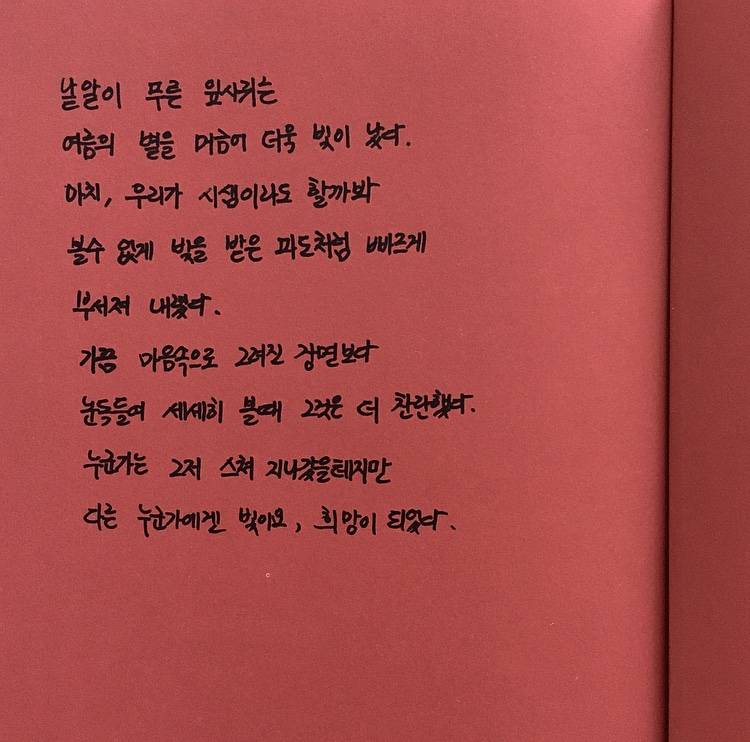 낱알이 푸른 잎사귀는
여름의 볕을 머금어 더욱 빛이 났다.
마치, 우리가 시샘이라도 할까봐
볼수 없게 빛을 받은 파도처럼 빠르게
부서져 내렸다.
가끔 마음속으로 그려진 장면보다
눈독들여 세세히 볼때 그것은 더 찬란했다.
누군가는 그저 스쳐 지나갔을테지만
다른 누군가에겐 빛이요, 희망이 되었다.